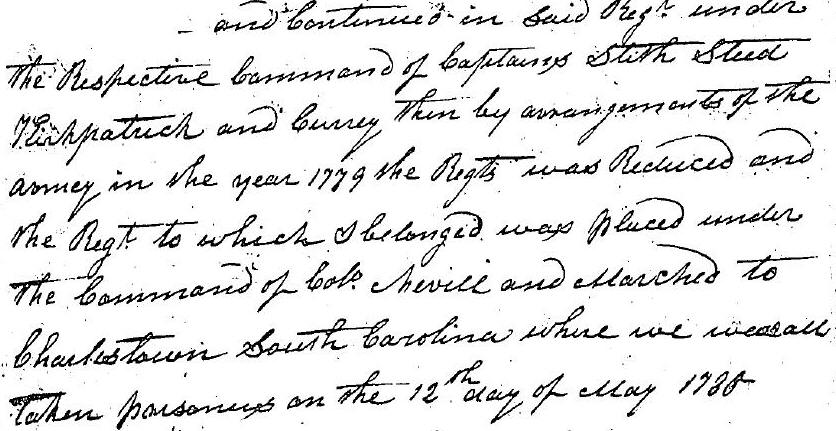 and Continued in Said Regt. under
the Respective Command of Captains Stith Steed
Kirkpatrick and Currey then by arrangements of the
armey in the year 1779 the Regts was Reduced and
the Regt to which I belonged was placed under
the Command of Colo. Nevill and Marched to
Charlestown South Carolina where we were all
taken prisoners on the 12th day of May 1780